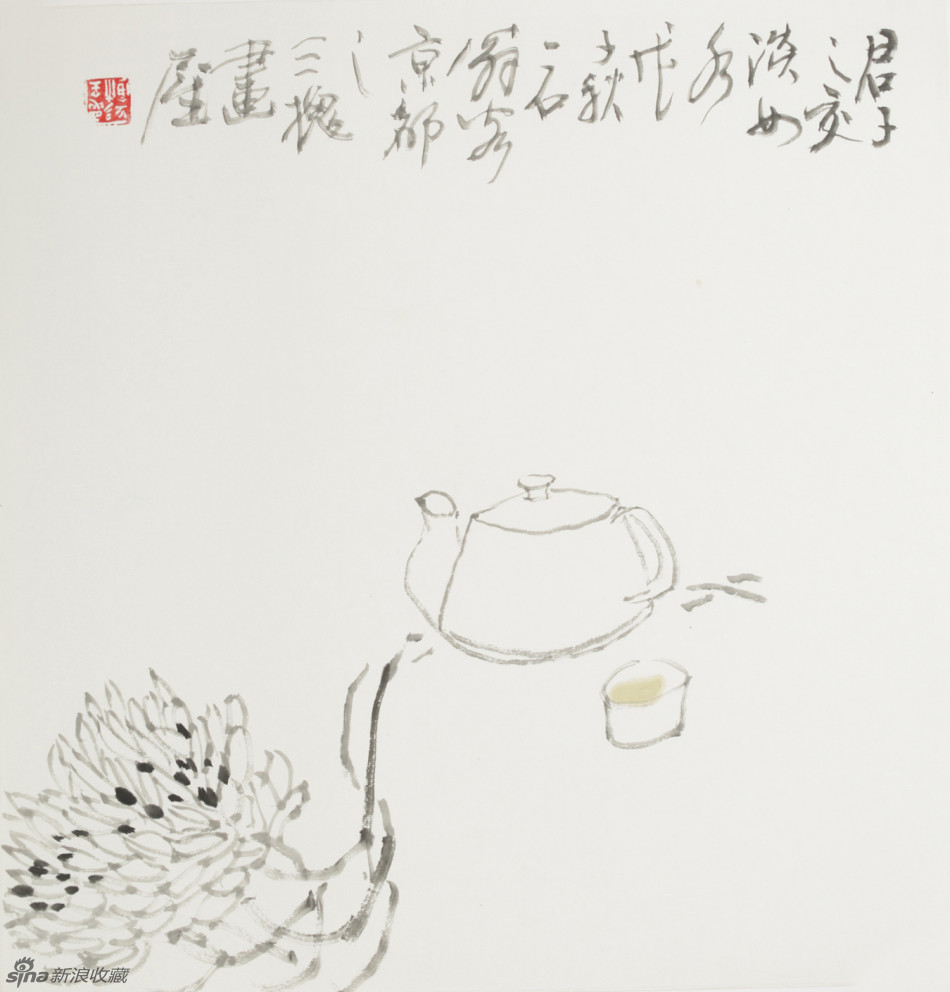 君子
之交
淡如
水
戊
子秋
二石
翁客
京都
之
三槐
畫
廬
sina新浪收藏